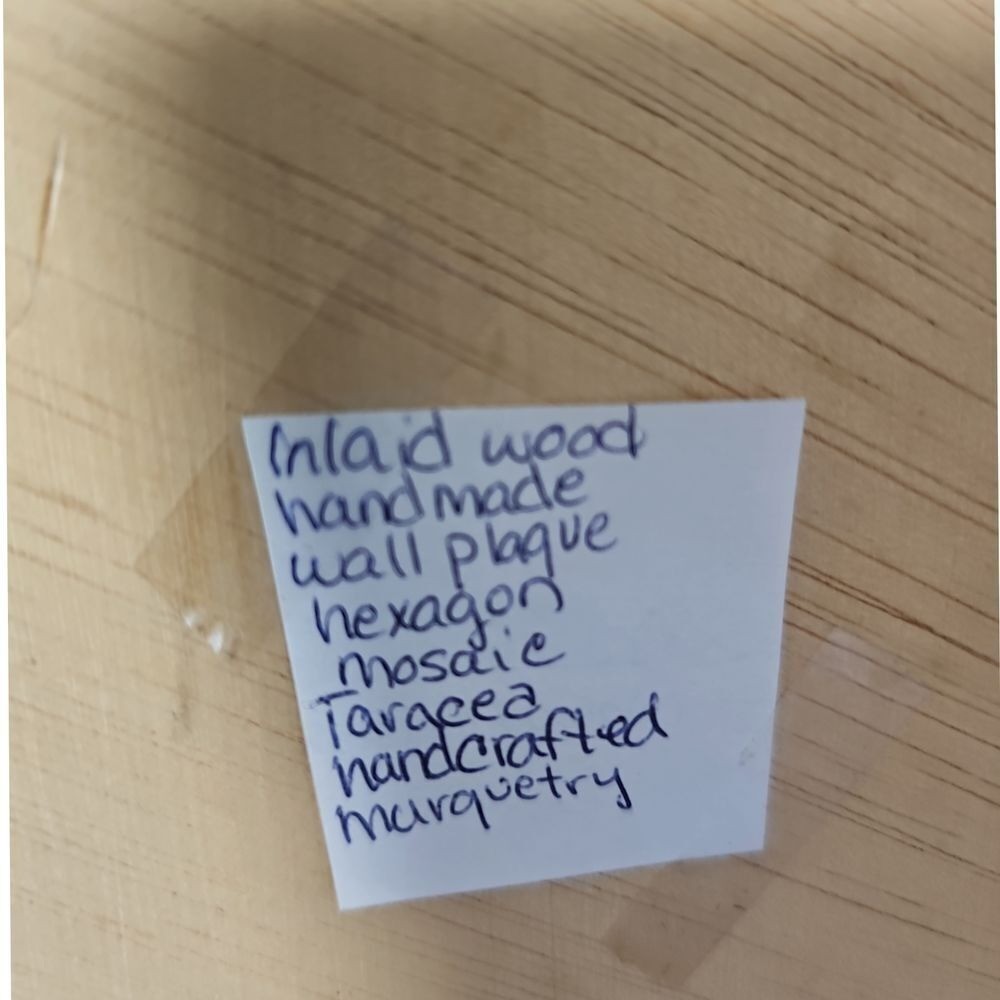 Inlaid wood
handmade
wall plaque
hexagon
mosaic
Taracea
handcrafted
marquetry